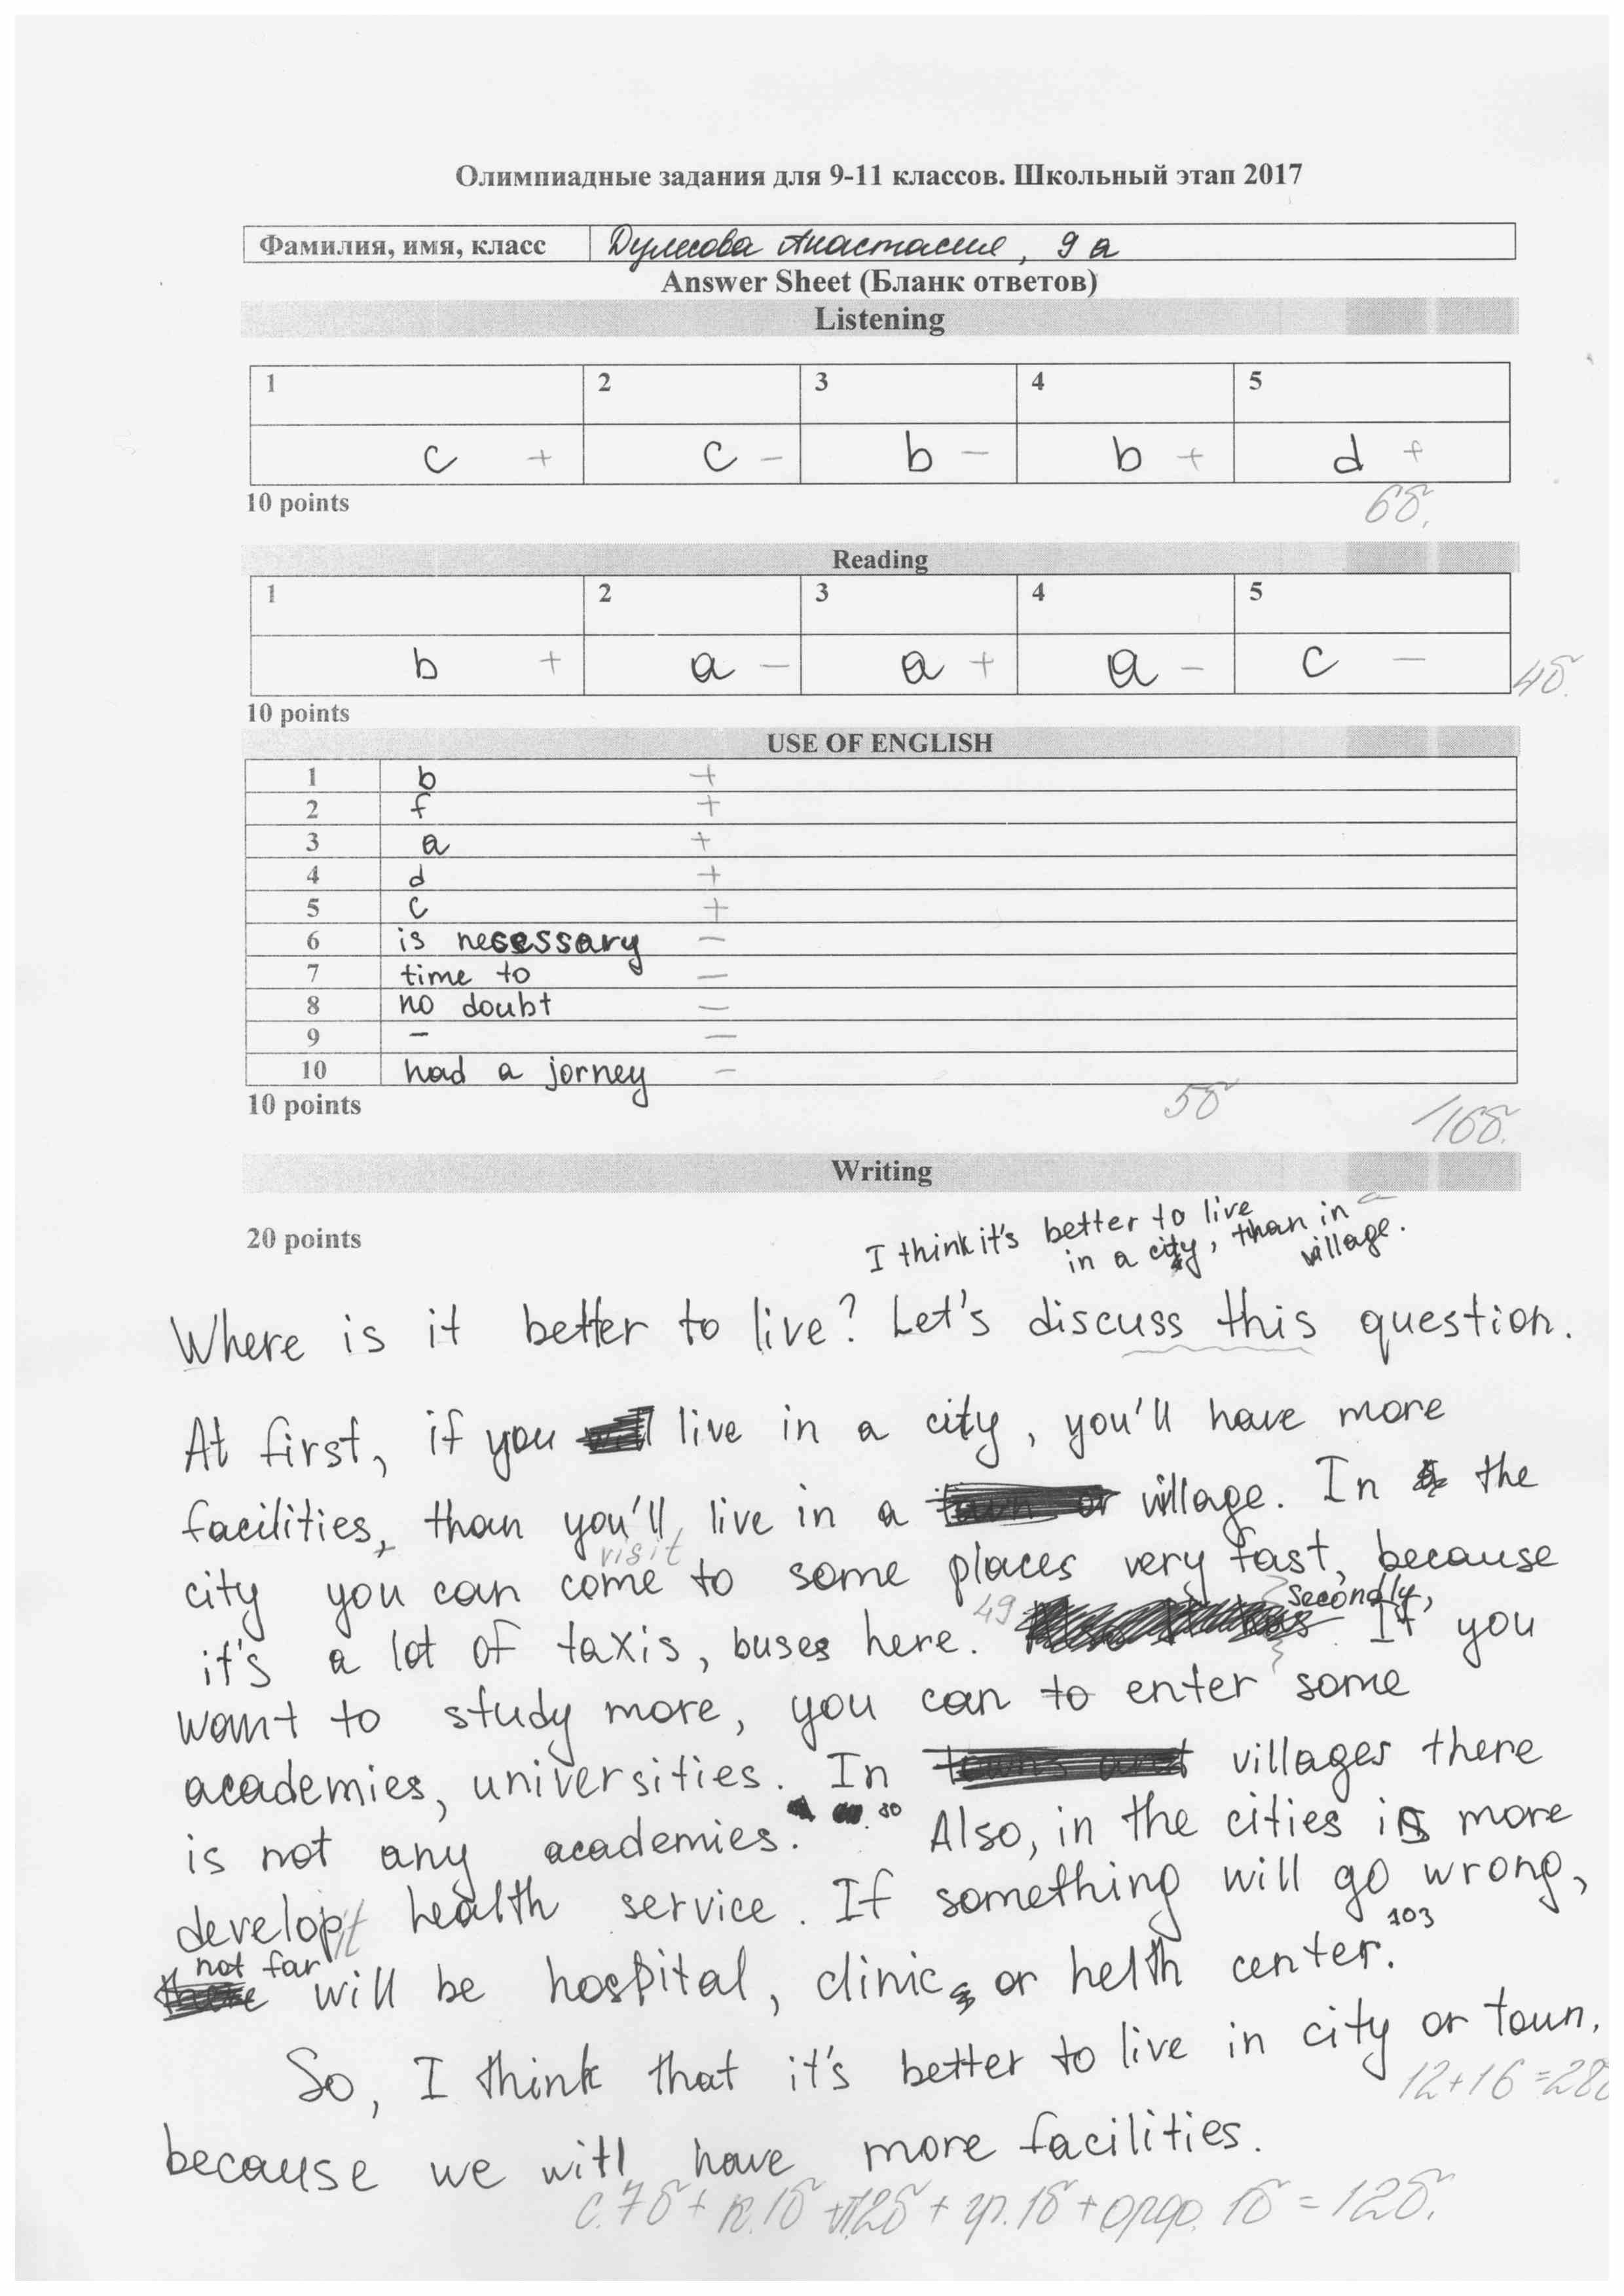 Олимпиадные задания для 9-11 классов. Школьный этап 2017
Фамилия, имя, класс Дулесова Анастасия, 9 а
Answer Sheet (Бланк ответов)
Listening
1 2 3 4 5
c + c - b - b + d +
10 points
6б.
Reading
1 2 3 4 5
b + a - a + a - c -
4б.
10 points
USE OF ENGLISH
1 b +
2 f +
3 a +
4 d +
5 c +
6 is necessary -
7 time to -
8 no doubt -
9 - -
10 had a jorney -
10 points
5б
16б.
Writing
20 points
I think it's better to live
in a city, than in a
village.
Where is it better to live? Let's discuss this question.
At first, if you live in a city, you'll have more
facilities, than you'll live in a village. In the
visit
city you can come to some places very fast, because
49 Secondly,
it's a lot of taxis, buses here. If you
want to study more, you can to enter some
academies, universities. In villages there
80
is not any academies. Also, in the cities is more
develop health service. If something will go wrong,
not far 103
will be hospital, clinic, or helth center.
So, I think that it's better to live in city or toun,
12+16=28б
because we will have more facilities.
с.7б + к.1б + л2б + гр.1б + орфо. 1б = 12б.